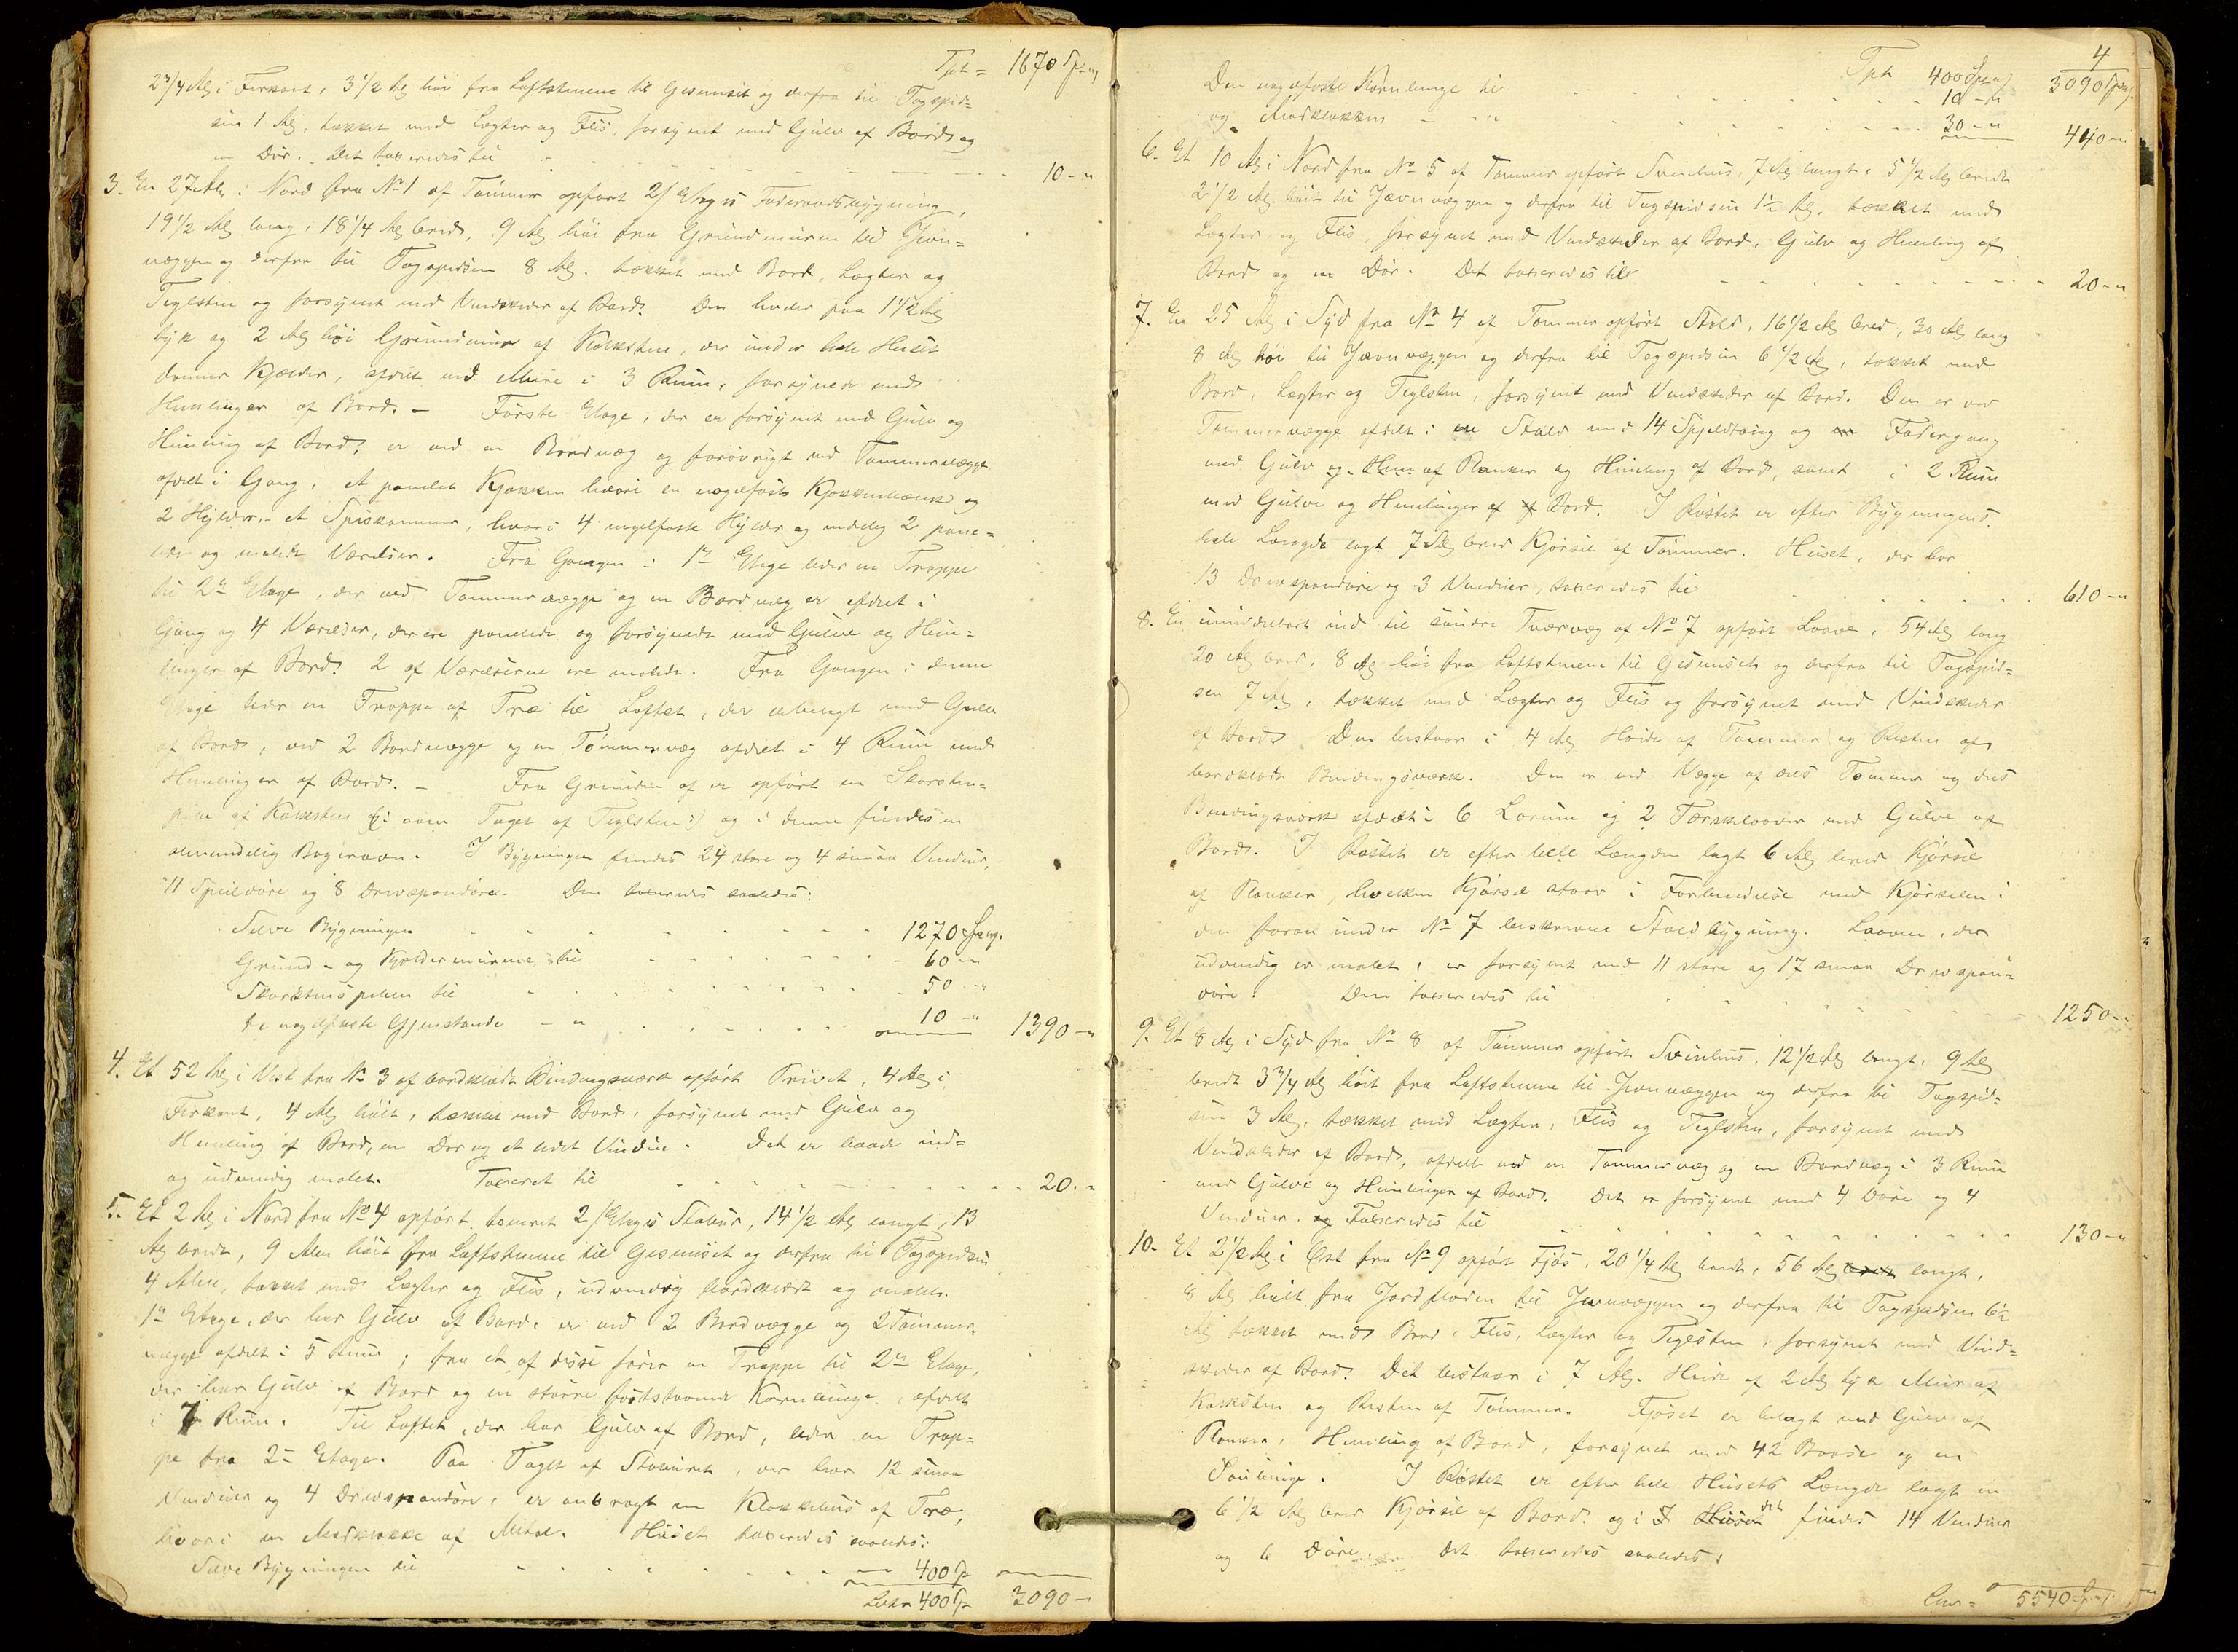 Tpt = 1670 Spd.
2 3/4 Al. i Firkant, 3 1/2 Al. høi fra Laftstenene til Gesimset og derfra til Tagspid-
sen 1 Al., tækket med Lægter og Flis, forsynet med Gulv af Bord og
en Dør. Det taxeredes til 10 - "
3. En 27 Al. i Nord fra No 1 af Tømmer opført 2/Etages Føderaadsbygning,
19 1/2 Al. lang, 18 1/4 Al. bred, 9 Al. høi fra Grundmuren til Jevn-
væggen og derfra til Tagspidsen 8 Al. tækket med Bord, Lægter og
Teglsten og forsynet med Vindskeder af Bord. Den hviler paa 1 1/2 Al.
tyk og 2 Al. høi Grundmur af Kalksten, der under hele Huset
danner Kjælder, afdelt ved Mure i 3 Rum, forsynede med
Himlinger af Bord. - Første Etage, der er forsynet med Gulv og
Himling af Bord, er ved en Bordvæg og forøvrigt ved Tømmervægge
afdelt i Gang, et panelet Kjøkken hvori en nagelfast Kjøkkenbænk og
2 Hylder, et Spiskammer, hvori 4 nagelfaste Hylder og endelig 2 pane-
lede og malede Værelser. Fra Gangen i 1ste Etage leder en Trappe
til 2den Etage, der ved Tømmervægge og en Bordvæg er afdelt i
Gang og 4 Værelser, der ere panelede og forsynede med Gulve og Him-
linger af Bord. 2 af Værelserne ere malede. Fra Gangen i denne
Etage leder en Trappe af Træ til Loftet, der er belagt med Gulv
af Bord, ved 2 Bordvægge og en Tømmervæg afdelt i 4 Rum med
Himlinger af Bord. - Fra Grunden af er opført en Skorstens-
pibe af Kalksten (: over Taget af Teglsten :) og i denne findes en
almindelig Bagerovn. I Bygningen findes 24 store og 4 smaa Vinduer,
11 Speildøre og 8 Drevspondøre. Den taxeredes saaledes:
Selve Bygningen 1270 Spd.
Grund- og Kjældermurene til 60 - "
Skorstenspiben til 50 - "
de nagelfaste Gjenstande - " 10 - " 1390 - "
4. Et 52 Al. i Vest fra No 3 af bordklædt Bindingsværk opført Privet, 4 Al. i
Firkant, 4 Al. høit, tækket med Bord, forsynet med Gulv og
Himling af Bord, en Dør og et lidet Vindue. Det er baade ind-
og udvendig malet. Taxeret til 20 - "
5. Et 2 Al. i Nord fra No 4 opført tømret 2/Etages Stabur, 14 1/2 Al. langt, 13
Al. bredt, 9 Alen høit fra Laftstenene til Gesimset og derfra til Tagspidsen
4 Alen, tækket med Lægter og Flis, udvendig bordklædt og malet.
1ste Etage, der har Gulv af Bord, er ved 2 Bordvægge og 2 Tømmer-
vægge afdelt i 5 Rum; fra et af disse fører en Trappe til 2den Etage,
der har Gulv af Bord og en større faststaaende Kornbinge, afdelt
i 7 Rum. Til Loftet, der har Gulv af Bord, leder en Trap-
pe fra 2den Etage. Paa Taget af Staburet, der har 12 smaa
Vinduer og 4 Drevspondøre, er anbragt en Klokkehus af Træ,
hvori en Madklokke af Metal. Huset taxeredes saaledes:
Selve Bygningen til 400 Sp
Lakr 400 Sp 3090 -
4
Tpt 400 Spd 3090 Spd.
Den nagelfaste Kornbinge til 10 - "
og Madklokken - " 30 - " 440 - "
6. Et 10 Al. i Nord fra No 5 af Tømmer opført Svinehus, 7 Al. langt, 5 1/2 Al. bredt
2 1/2 Al. høit til Jævnvæggen og derfra til Tagspidsen 1 1/2 Al. tækket med
Lægter og Flis, forsynet med Vindskeder af Bord, Gulv og Himling af
Bord og en Dør. Det taxeredes til 20 - "
7. En 25 Al. i Syd fra No 4 af Tømmer opført Stald, 16 1/2 Al. bred, 30 Al. lang
8 Al. høi til Jævnvæggen og derfra til Tagspidsen 6 1/2 Al., tækket med
Bord, Lægter og Teglsten, forsynet med Vindskeder af Bord. Den er ved
Tømmervægge afdelt i en Stald med 14 Spiltoug og en Fodergang
med Gulv og Him af Planker og Himling af Bord, samt i 2 Rum
med Gulve og Himlinger af Bord. I Røstet er efter Bygningens
hele Længde lagt 7 Al. bred Kjørsel af Tømmer. Huset, der har
13 Drevspondøre og 3 Vinduer, taxeredes til 610 - "
8. En umiddelbart ind til søndre Tværvæg af No 7 opført Laave, 54 Al. lang
20 Al. bred, 8 Al. høi fra Laftstenene til Gesimset og derfra til Tagspid-
sen 7 Al., tækket med Lægter og Flis og forsynet med Vindskeder
af Bord. Den bestaar i 4 Al. Høide af Tømmer og Resten af
bordklædt Bindingsværk. Den er ved Vægge af dels Tømmer og dels
Bindingsværk afdelt i 6 Lorum og 2 Tærskelaaver med Gulve af
Bord. I Røstet er efter hele Længden lagt 6 Al. bred Kjørsel
af Planker, hvilken Kjørsel staar i Forbindelse med Kjørselen i
den foran under No 7 beskrevne Staldbygning. Laaven, der
udvendig er malet, er forsynet med 11 store og 17 smaa Drevspon-
døre. Den taxeredes til 1250 - "
9. Et 8 Al. i Syd fra No 8 af Tømmer opført Svinehus, 12 1/2 Al. langt, 9 Al.
bredt 3 3/4 Al. høit fra Laftstenene til Jevnvæggen og derfra til Tagspid-
sen 3 Al. tækket med Lægter, Flis og Teglsten, forsynet med
Vindskeder af Bord, afdelt ved en Tømmervæg og en Bordvæg i 3 Rum
med Gulve og Himlinger af Bord. Det er forsynet med 4 Døre og 4
Vinduer. og Taxeredes til 130 - "
10. Et 2 1/2 Al. i Øst fra No 9 opført Fjøs, 20 1/4 Al. bredt, 56 Al. bredt langt,
8 Al. høit fra Jordfladen til Jevnvæggen og derfra til Tagspidsen 6 1/2
Al. tækket med Bord, Flis, Lægter og Teglsten, forsynet med Vind-
skeder af Bord. Det bestaar i 7 Al. Høide af 2 Al. tyk Mur af
Kalksten og Resten af Tømmer. Fjøset er belagt med Gulv af
Planker, Himling af Bord, forsynet med 42 Baase og en
I Røstet er efter hele Husets Længde lagt en
6 1/2 Al. bred Kjørsel af Bord. og i I Huset det findes 14 Vinduer
og 6 Døre. Det taxeredes saaledes:
5540 Sp